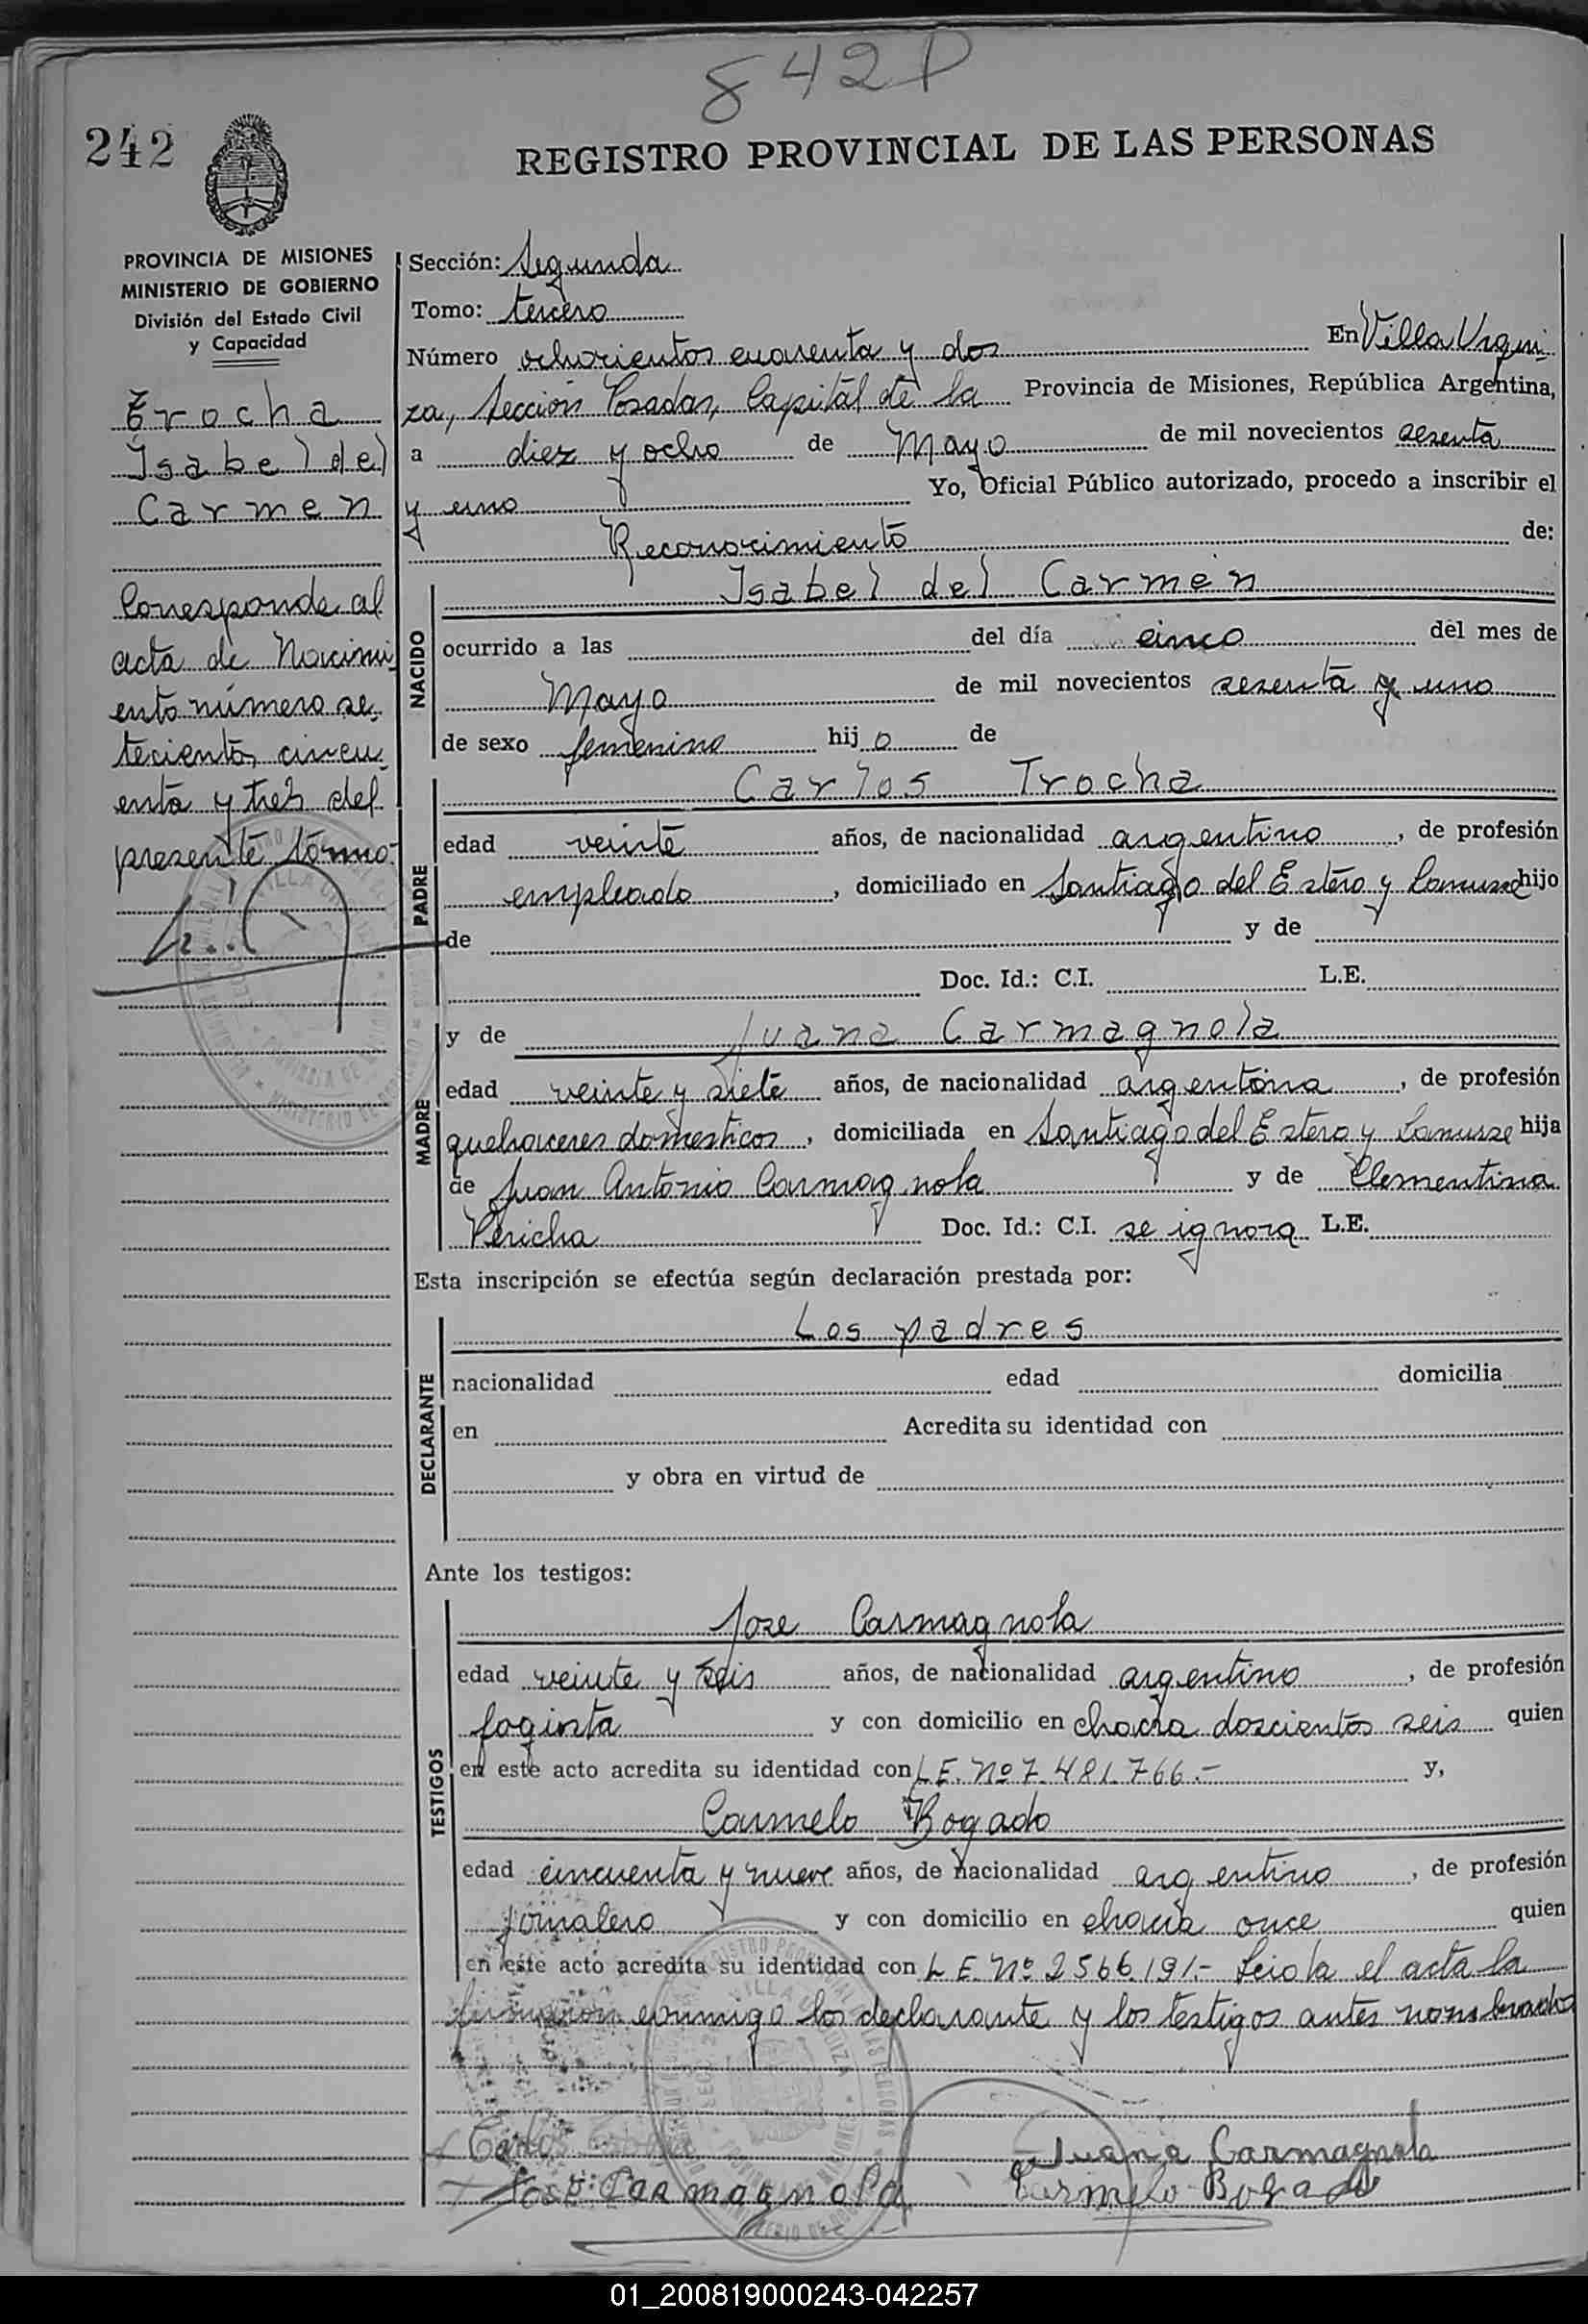 842 P
242
REGISTRO PROVINCIAL DE LAS PERSONAS
PROVINCIA DE MISIONES
MINISTERIO DE GOBIERNO
División del Estado Civil
y Capacidad
Trocha
Isabel del
Carmen
Corresponde al
acta de Nacimi
ento número se
tecientos cincu
enta y tres del
presente tomo.
Sección: Segunda
Tomo: tercero
Número ochocientos cuarenta y dos En Villa Urqui
za, Sección Posadas, Capital de la Provincia de Misiones, República Argentina,
a diez y ocho de Mayo de mil novecientos sesenta
y uno Yo, Oficial Público autorizado, procedo a inscribir el
Reconocimiento de:
NACIDO
Isabel del Carmen
ocurrido a las del día cinco del mes de
Mayo de mil novecientos sesenta y uno
de sexo femenino hijo de
PADRE
Carlos Trocha
edad veinte años, de nacionalidad argentino, de profesión
empleado, domiciliado en Santiago del Estero y Lanusse hijo
de y de
Doc. Id.: C.I. L.E.
MADRE
y de Juana Carmagnola
edad veinte y siete años, de nacionalidad argentina, de profesión
quehaceres domesticos, domiciliada en Santiago del Estero y Lanusse hija
de Juan Antonio Carmagnola y de Clementina
Pericha Doc. Id.: C.I. se ignora L.E.
Esta inscripción se efectúa según declaración prestada por:
DECLARANTE
Los padres
nacionalidad edad domicilia
en Acredita su identidad con
y obra en virtud de
Ante los testigos:
TESTIGOS
Jose Carmagnola
edad veinte y seis años, de nacionalidad argentino, de profesión
foguista y con domicilio en chacra doscientos seis quien
en este acto acredita su identidad con L E. Nº 7.481.766.- y,
Carmelo Bogado
edad cincuenta y nueve años, de nacionalidad argentino, de profesión
jornalero y con domicilio en chacra once quien
en este acto acredita su identidad con L E. Nº 2566.191.- Leida el acta la
firmaron conmigo los declarante y los testigos antes nombrados
Carlos
Juana Carmagnola
José Carmagnola
Carmelo Bogado
01_200819000243-042257